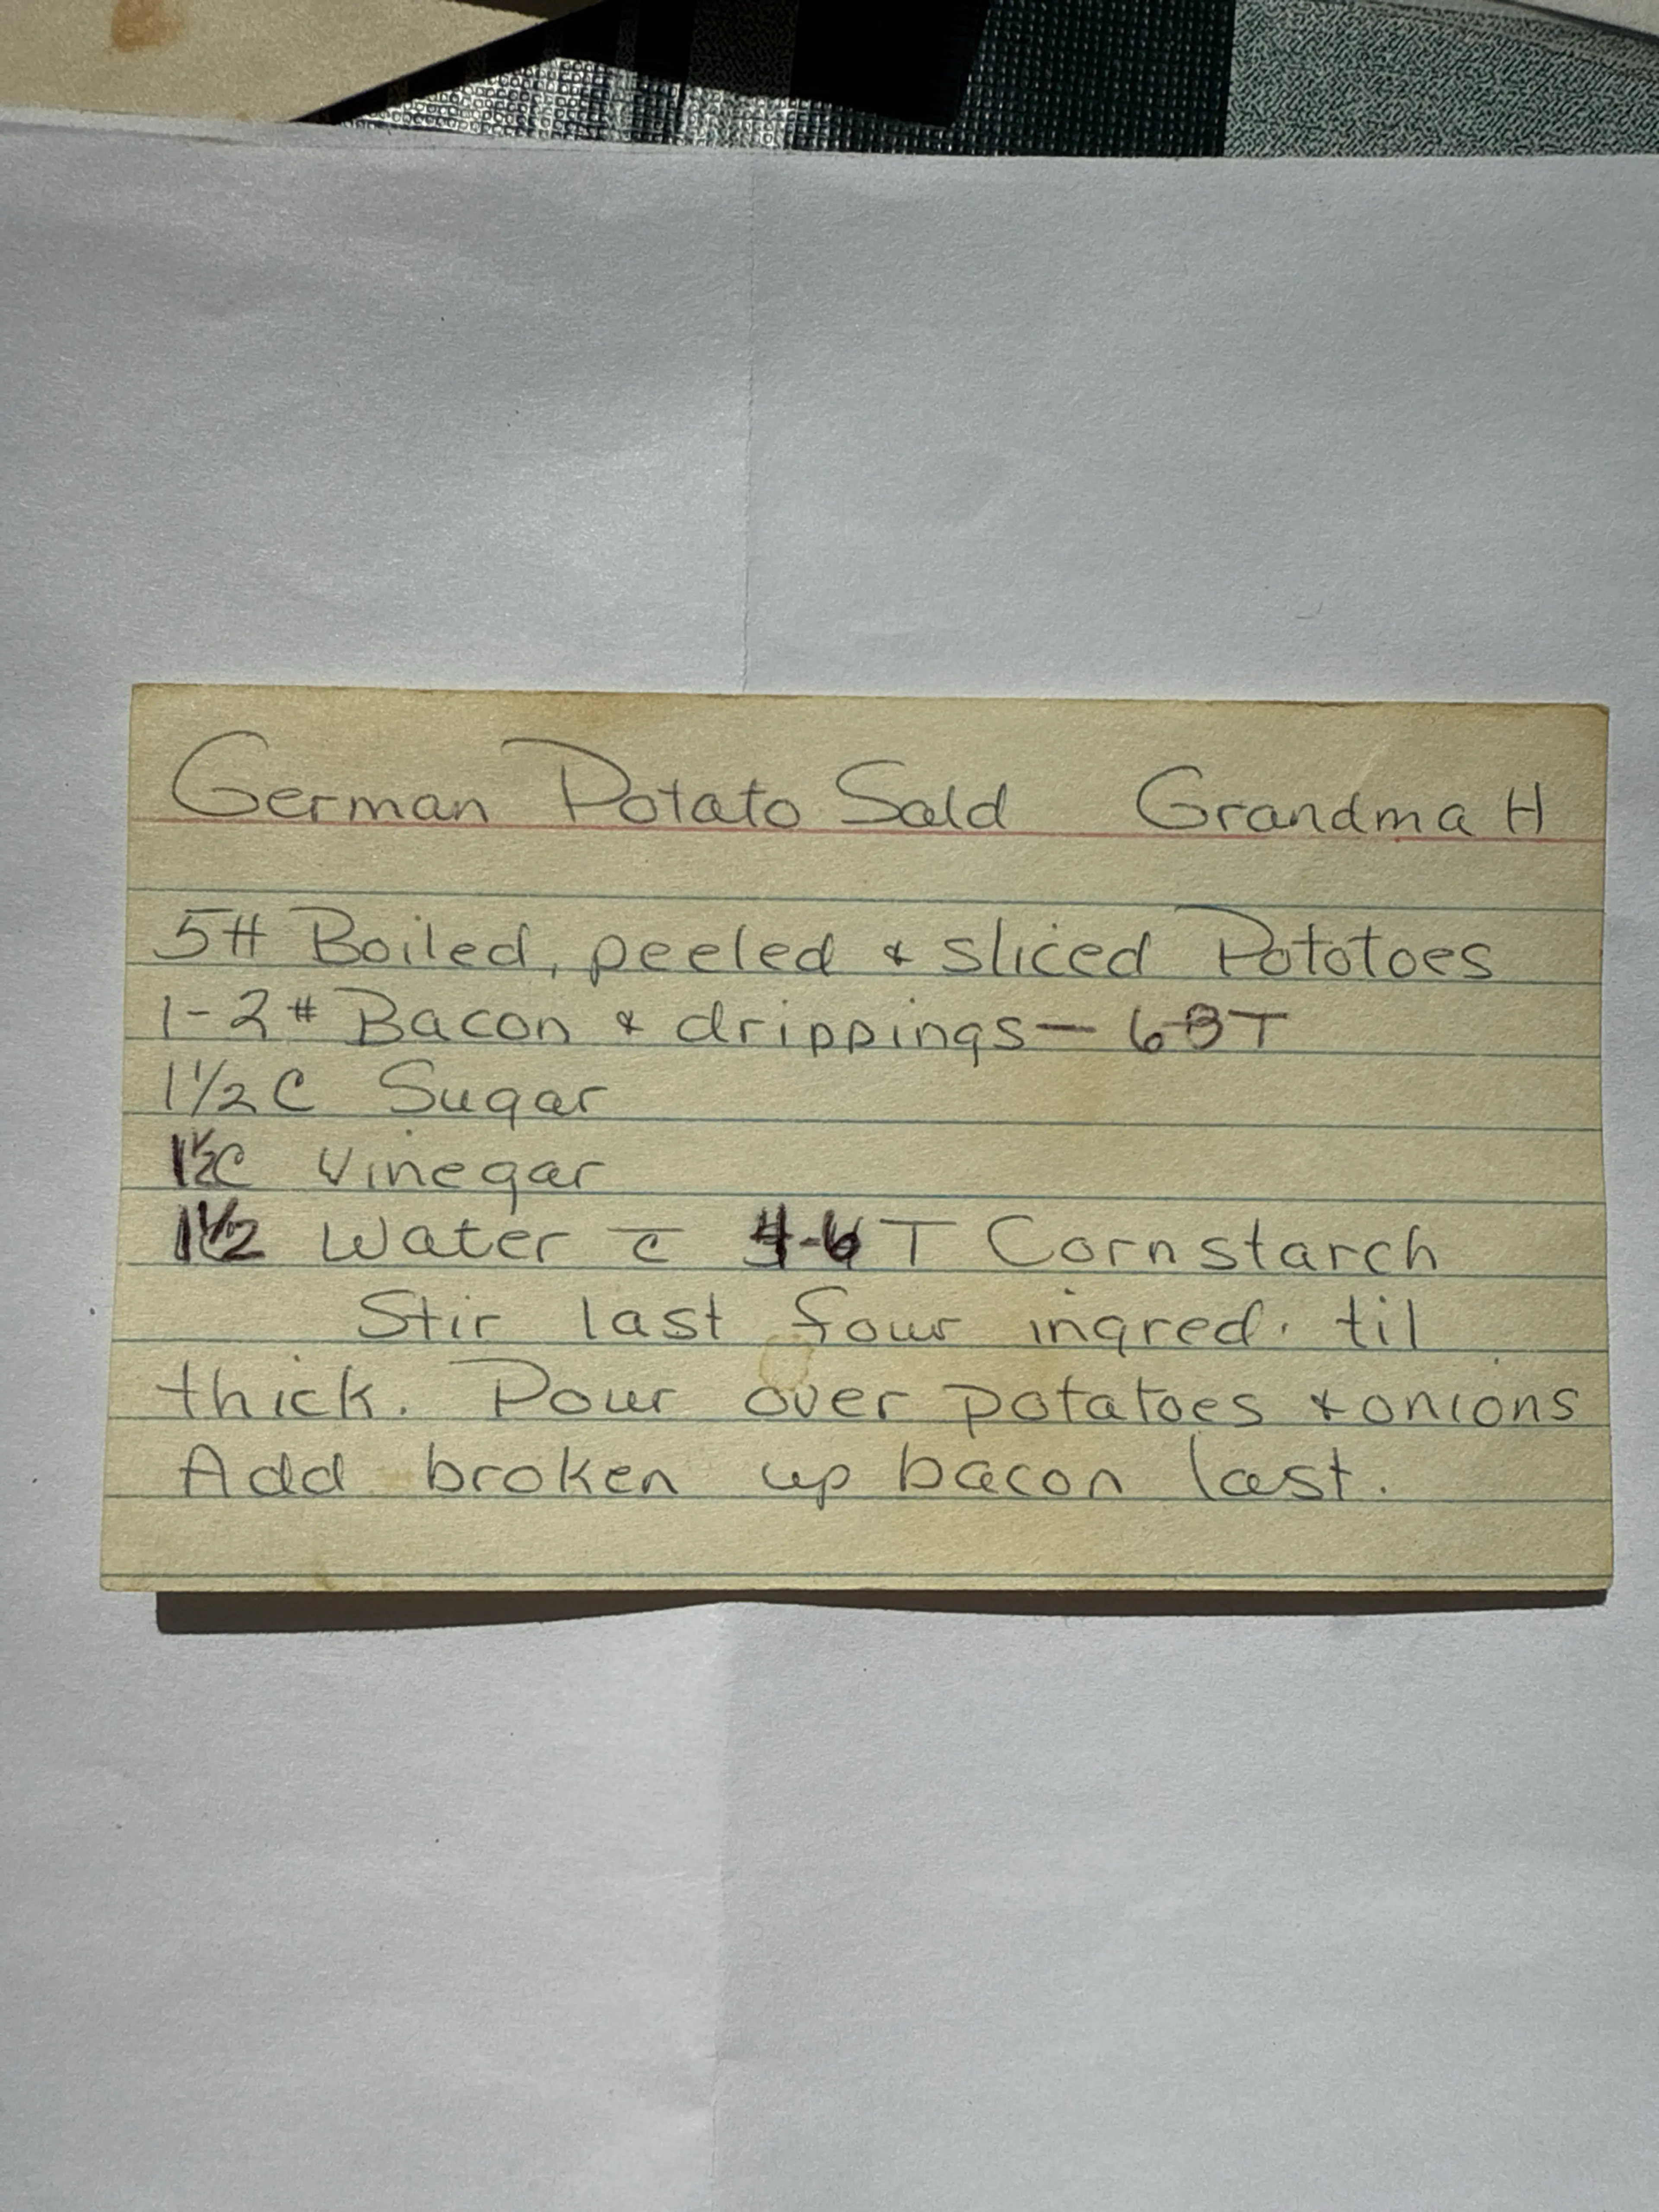 German Potato Sald Grandma H
5# Boiled, peeled & sliced Pototoes
1-2# Bacon & drippings — 6-8T
1 1/2 C Sugar
1 1/2 C Vinegar
1 1/2 Water c̄ 4-6 T Cornstarch
Stir last four ingred. til
thick. Pour over potatoes & onions
Add broken up bacon last.